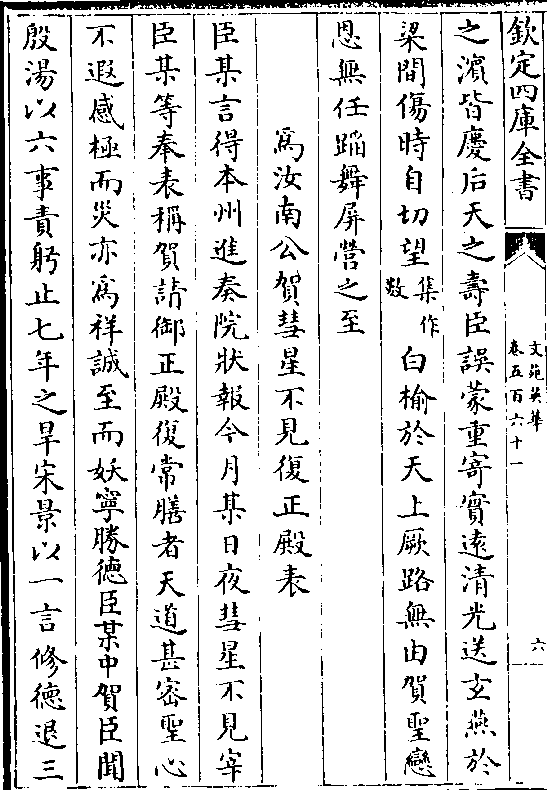 欽定四庫全書
文苑英華
卷五百六十一
六
之濱皆慶后天之壽臣誤蒙重寄實遠清光送玄燕於
梁間傷時自切望集作數白榆於天上厥路無由賀聖戀
恩無任蹈舞屏營之至
為汝南公賀彗星不見復正殿表
臣某言得本州進奏院狀報今月某日夜彗星不見宰
臣某等奉表稱賀請御正殿復常膳者天道甚密聖心
不遐感極而災亦為祥誠至而妖寧勝德臣某中賀臣聞
殷湯以六事責躬止七年之旱宋景以一言修德退三